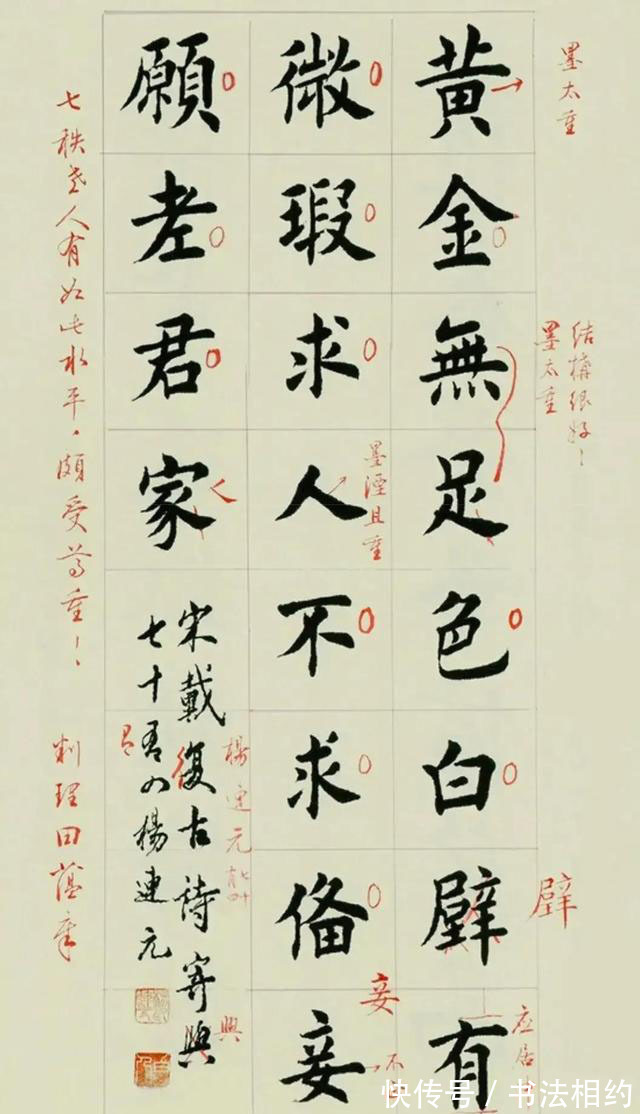 墨太重
黄金無足色白璧有
结構很好!
墨太重
璧
应居
微瑕求人不求俻妾
墨湮且重
妾
願老君家
宋戴復古诗寄興
楊連元
興
七十有四楊連元
七秩老人有如此水平,頗受尊重!
田蕴章
快传号 / 书法相约